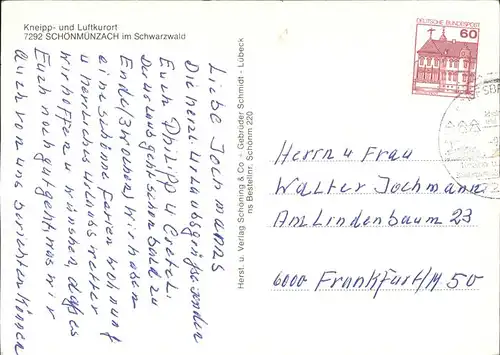 Kneipp- und Luftkurort
7292 SCHÖNMÜNZACH im Schwarzwald
Liebe Jochmanns
Die herzl. Urlaubsgrüße senden
Euch Philipp u Gretel.
Der Urlaub geht schon bald zu
Ende (3 Wochen) wir haben
eine schöne Ferienwohnung
u herrliches Urlaubswetter
Wir hoffen u wünschen, daß es
Euch noch gut geht was wir
Auch von uns berichten können
Herst. u. Verlag Schöning & Co · Gebrüder Schmidt · Lübeck
Bestellnr. Schönm 220
DEUTSCHE BUNDESPOST
60
Herrn u Frau
Walter Jochmann
Am Lindenbaum 23
6000 Frankfurt/M 50